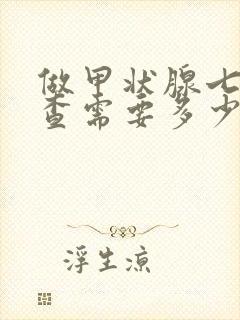 做甲状腺七
查需要多少
浮生凉